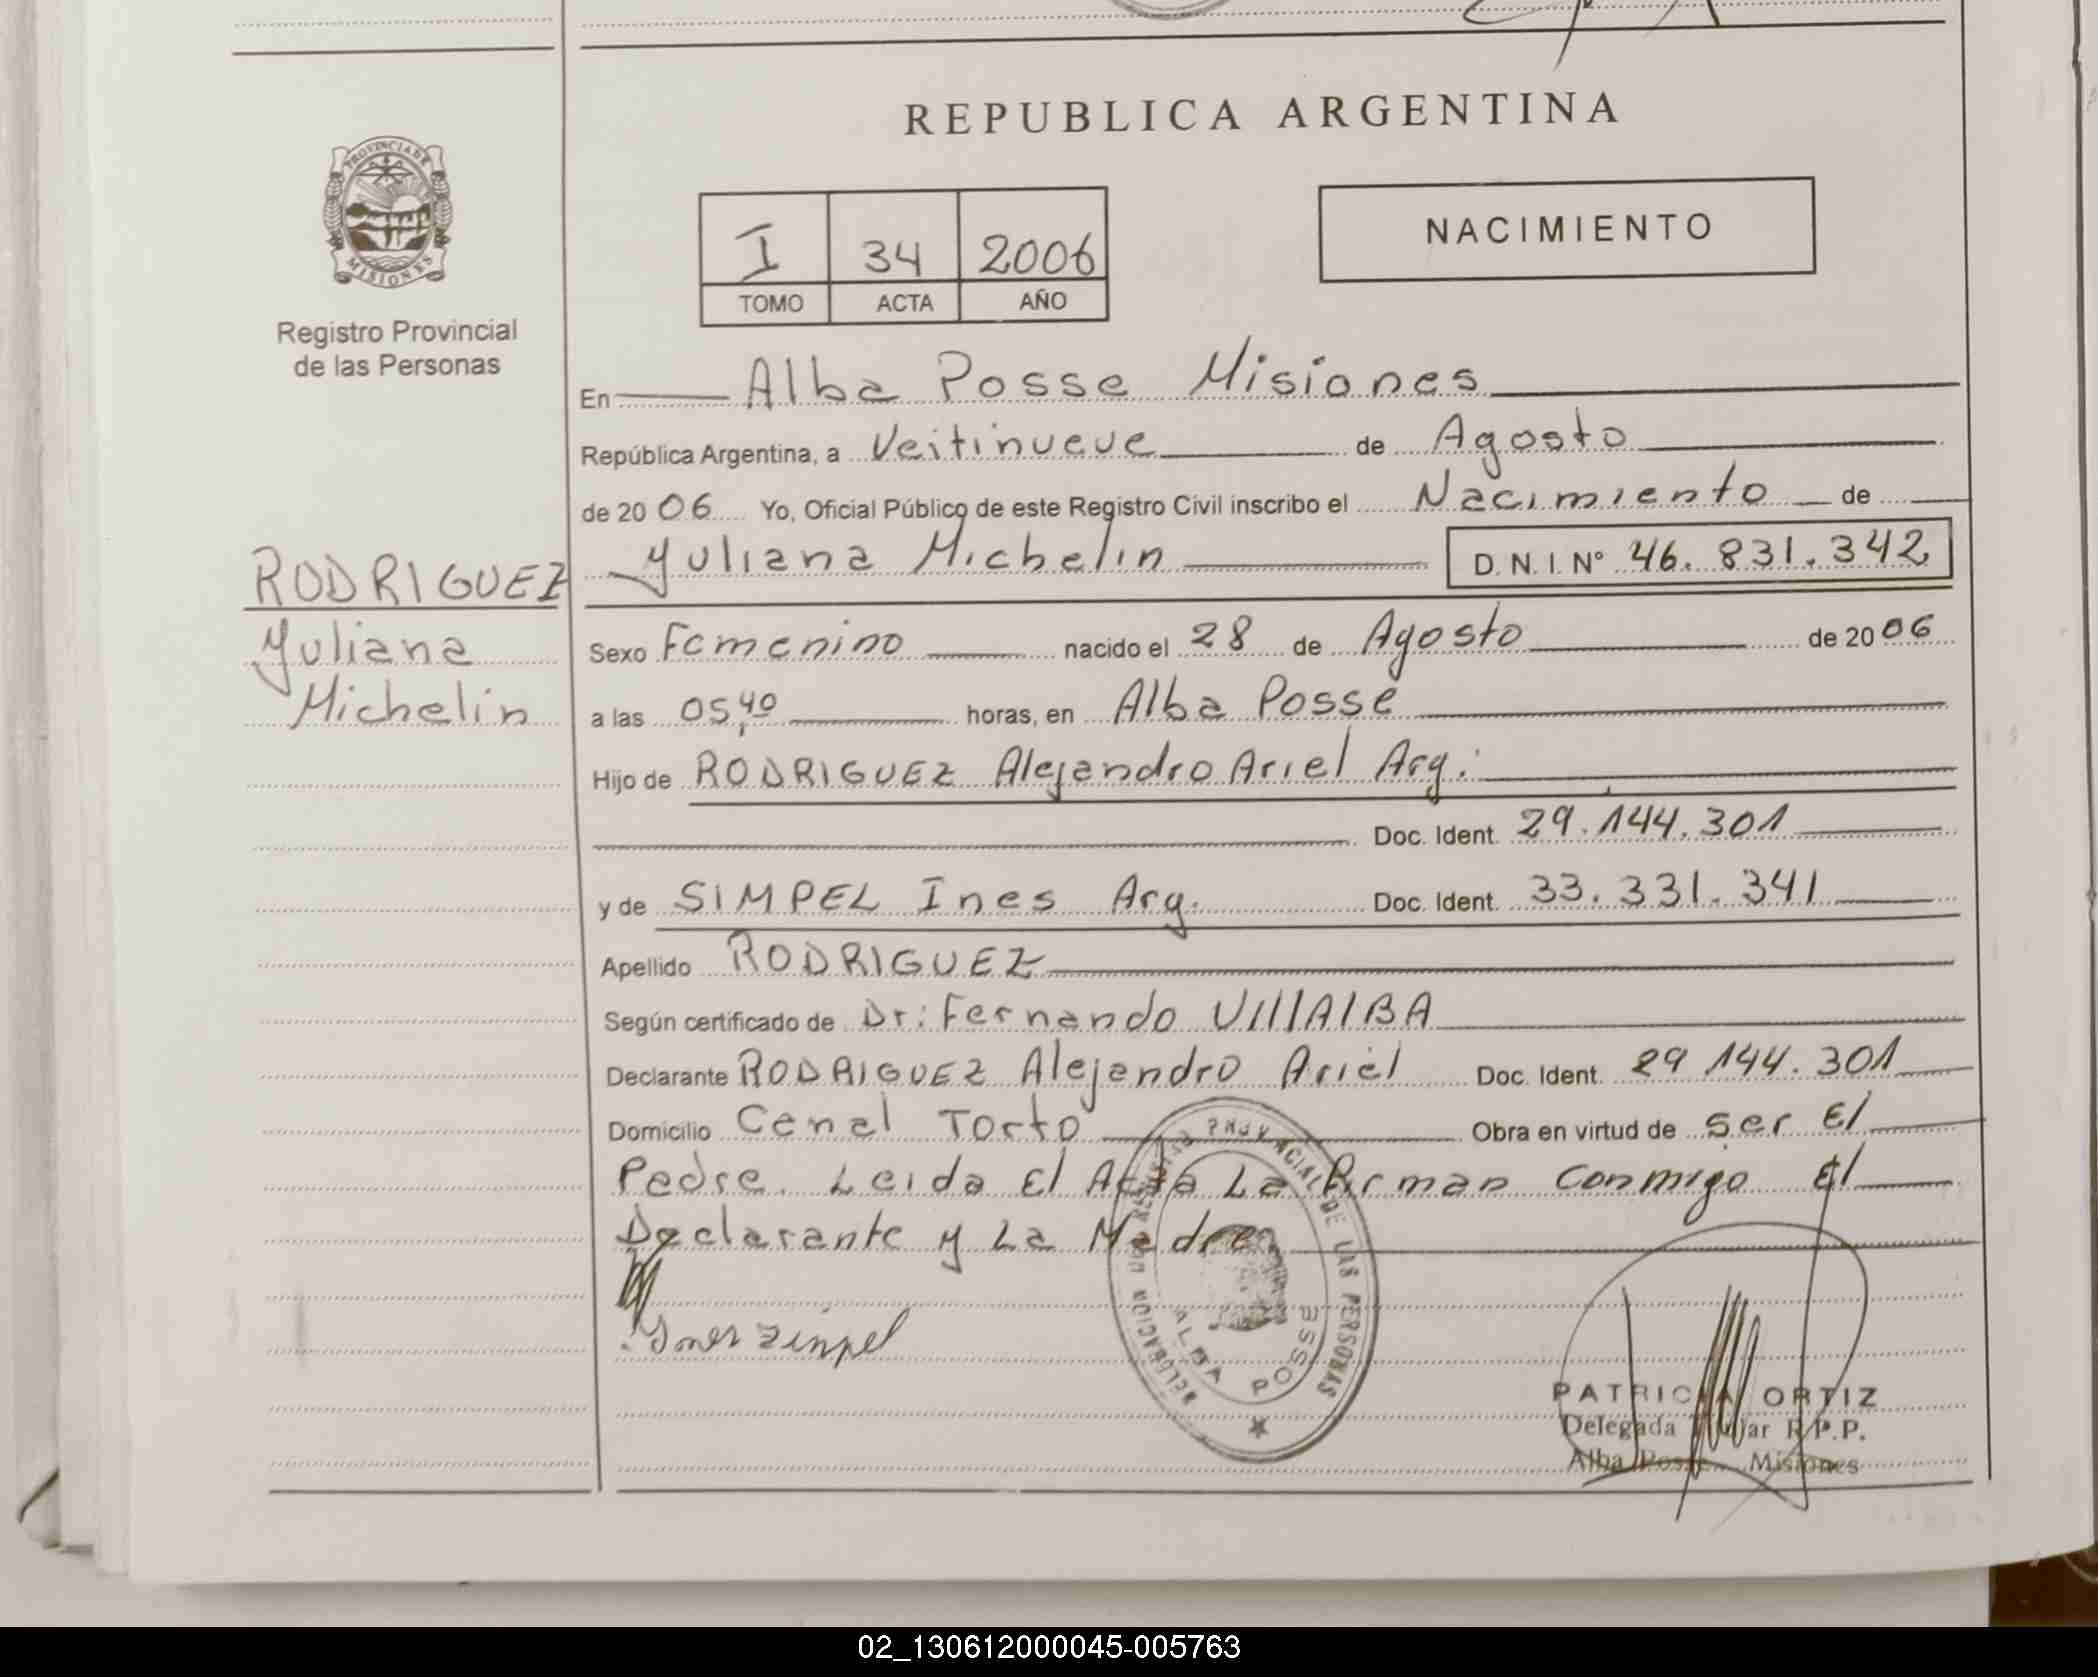 REPUBLICA ARGENTINA
PROVINCIA DE
MISIONES
Registro Provincial
de las Personas
I 34 2006
TOMO ACTA AÑO
NACIMIENTO
En Alba Posse Misiones
República Argentina, a Veitinueve de Agosto
de 2006 Yo, Oficial Público de este Registro Civil inscribo el Nacimiento de
RODRIGUEZ
Yuliana
Michelin
Yuliana Michelin D.N.I. Nº 46.831.342
Sexo Femenino nacido el 28 de Agosto de 2006
a las 05,40 horas, en Alba Posse
Hijo de RODRIGUEZ Alejandro Ariel Arg.
Doc. Ident. 29.144.301
y de SIMPEL Ines Arg. Doc. Ident. 33.331.341
Apellido RODRIGUEZ
Según certificado de Dr: Fernando VIllAlBA
Declarante RODRIGUEZ Alejandro Ariel Doc. Ident. 29 144.301
Domicilio Canal Torto Obra en virtud de ser El
Padre. Leida El Acta La Firman Conmigo El
Declarante y La Madre
Ines zinpel
DELEGACION REGISTRO PROVINCIAL DE LAS PERSONAS
ALBA POSSE
PATRICIA ORTIZ
Delegada Titular R.P.P.
Alba Posse Misiones
02_130612000045-005763